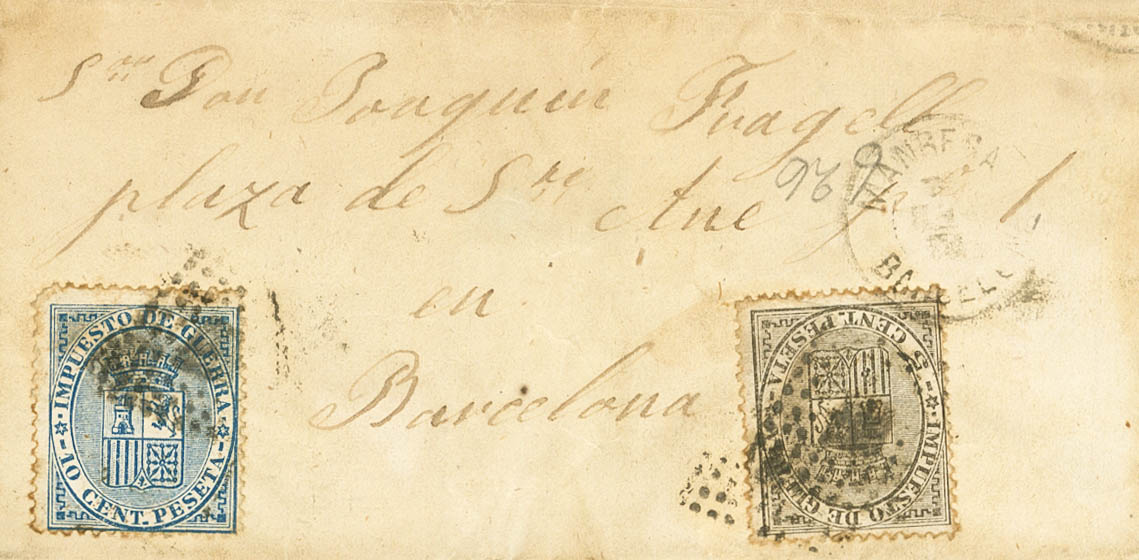 Sor Don Joaquin Fragell
plaza de Sre Ane 1,
en
Barcelona
926
MANRESA
BARCELO
IMPUESTO DE GUERRA
10 CENT. PESETA
IMPUESTO DE GUERRA
5 CENT. PESETA